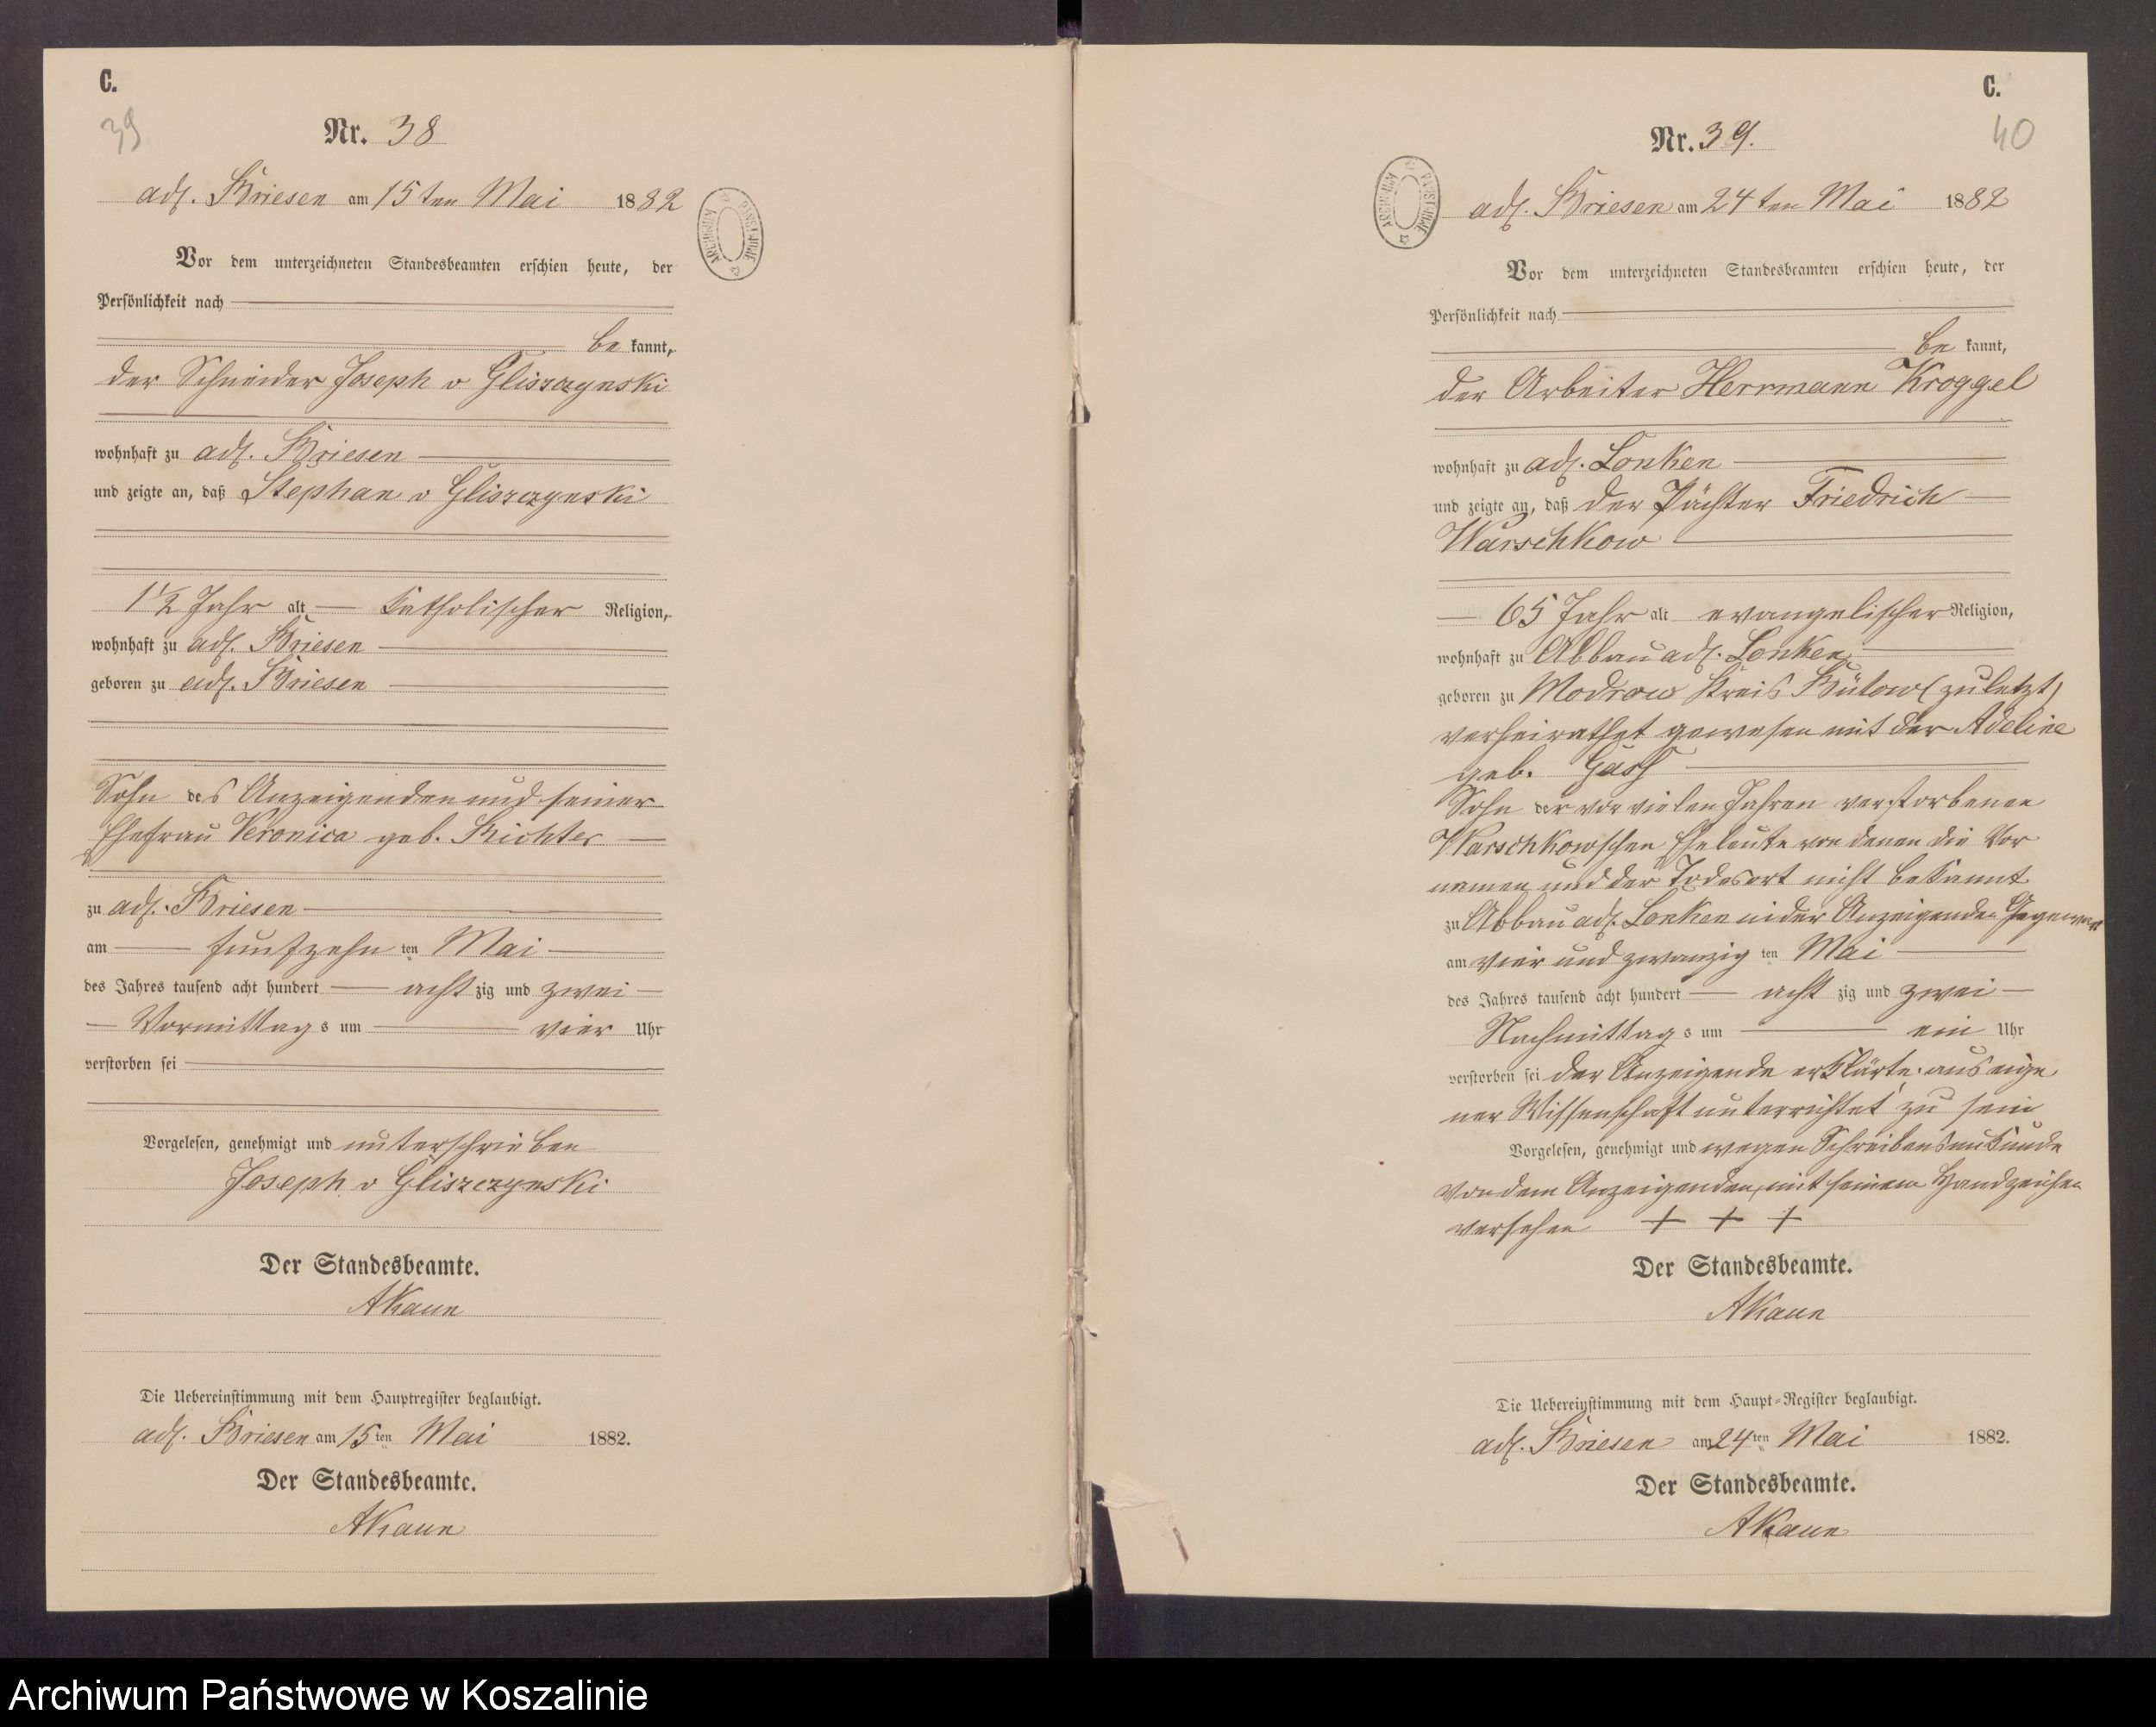 C.
39
Nr. 38
adl. Briesen am 15ten Mai 1882
Vor dem unterzeichneten Standesbeamten erschien heute, der
Persönlichkeit nach
be kannt,
der Schneider Joseph v Gliszczynski
wohnhaft zu adl. Briesen
und zeigte an, daß Stephan v Gliszczynski
1 1/2 Jahr alt katholischer Religion,
wohnhaft zu adl. Briesen
geboren zu adl. Briesen
Sohn des Anzeigenden und seiner
Ehefrau Veronica geb. Richter
zu adl. Briesen
am fünfzehn ten Mai
des Jahres tausend acht hundert acht zig und zwei
Vormittag s um vier Uhr
verstorben sei
Vorgelesen, genehmigt und unterschrieben
Joseph v Gliszczynski
Der Standesbeamte.
AKaun
Die Uebereinstimmung mit dem Hauptregister beglaubigt.
adl. Briesen am 15ten Mai 1882.
Der Standesbeamte.
AKaun
ARCHIWUM PAŃSTWOWE
C.
40
Nr. 39.
adl. Briesen am 24ten Mai 1882
Vor dem unterzeichneten Standesbeamten erschien heute, der
Persönlichkeit nach
be kannt,
der Arbeiter Herrmann Kroggel
wohnhaft zu adl. Lonken
und zeigte an, daß der Pächter Friedrich
Warschkow
65 Jahr alt evangelischer Religion,
wohnhaft zu Abbau adl. Lonken
geboren zu Modrow Kreis Bütow (zuletzt)
verheirathet gewesen mit der Adeline
geb.
Sohn der vor vielen Jahren verstorbenen
Warschkowschen Eheleute von denen die Vor
namen und der Todesort nicht bekannt
zu Abbau adl. Lonken in der Anzeigenden Gegenwart
am vier und zwanzig ten Mai
des Jahres tausend acht hundert acht zig und zwei
Nachmittag s um ein Uhr
verstorben sei der Anzeigende erklärte aus eige
ner Wissenschaft unterrichtet zu sein
Vorgelesen, genehmigt und wegen Schreibensunkunde
von dem Anzeigenden mit seinem Handzeichen
versehen + + +
Der Standesbeamte.
AKaun
Die Uebereinstimmung mit dem Haupt-Register beglaubigt.
adl. Briesen am 24ten Mai 1882.
Der Standesbeamte.
AKaun
ARCHIWUM PAŃSTWOWE
Archiwum Państwowe w Koszalinie